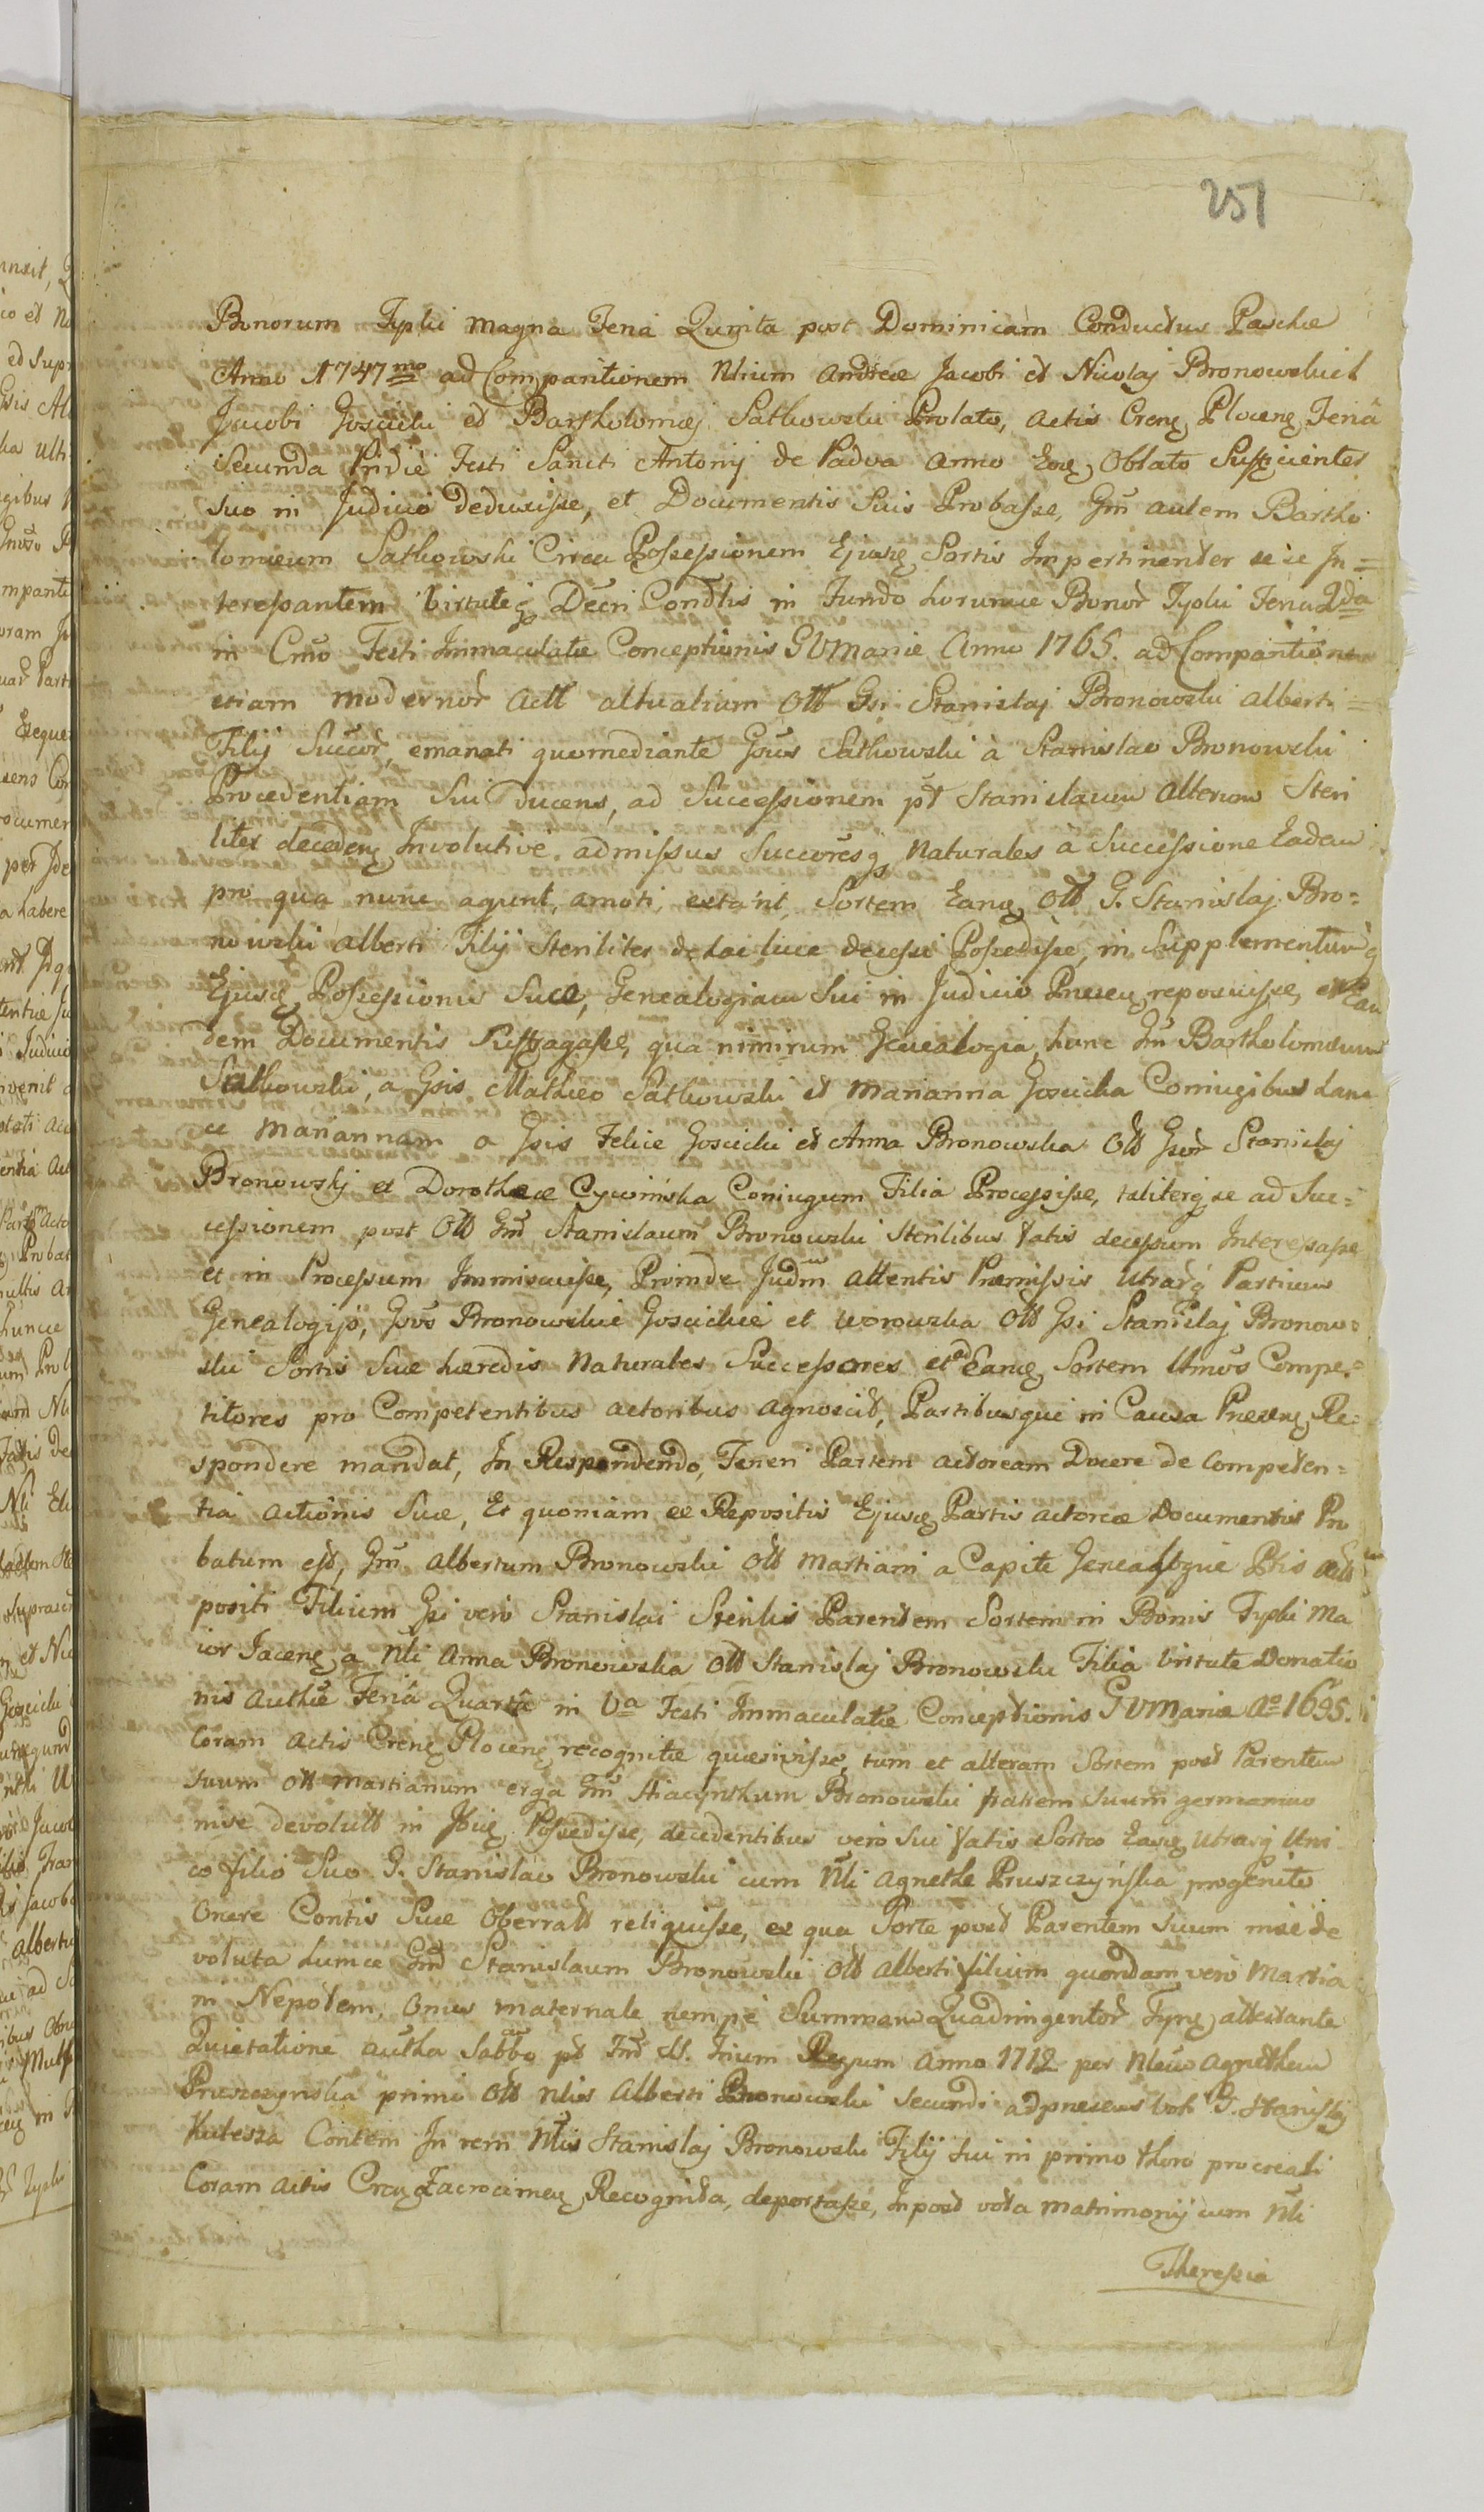 251
Bonorum Typlii Magna Feria Quinta post Dominicam Conductus Paschae
Anno 1747mo ad Comparitionem Nlium Andreae Jacobi et Nicolaj Bronowskich
Jacobi Gościcki et Bartholomaej Satkowski Prolato, actis Crens Plocens Feria
Secunda Pridie Festi Sancti Antonij de Padva Anno Eod Oblato Sufficienter
suo in Judicio deduxisse, et Documentis Suis Probasse, Gm autem Bartho
lomaeum Satkowski Circa Possessionem Ejusd Sortis Impertinenter se se In=
teressantem Virtuteq Decri Condlis in Fundo horumce Bonor Typlii Feria 2da
in Cmo Festi Immaculatae Conceptionis GVMariae Anno 1765. ad Comparitione
etiam modernor Actt altuatiam Ott Gsi Stanislaj Bronowski Alberti =
Filij Succor, emanati quomediante Gsus Satkowski à Stanislao Bronowski
Procedentiam Sui ducens, ad Successionem pt Stanislaum Alterum Steri
liter decedens Involutive admissus Succoresq Naturales à Successione Eadem
pro qua nunc agunt, amoti, extant, Sortem Eand Ott G. Stanislaj Bro=
nowski Alberti Filij Steriliter de hac luce decessi Possedisse, in Supplementumq
Ejusd Possessionis Suae, Genealogiam Sui in Judicio Praesens reposuisse, et Ean
dem Documentis Suffragasse, qua nimirum Genealogia hunc Gm Bartholomaeum
Satkowski, a Gsis Mathaeo Satkowski et Marianna Gościcka Coniugibus hanc
ce Mariannam a Gsis Felice Gościcki et Anna Bronowska Ott Gsor Stanislaj
Bronowskj et Dorotheae Cywińska Coniugum Filia Processisse, taliterq se ad Suc=
cessionem post Ott Gm Stanislaum Bronowski Sterilibus Fatis decessum Interessasse
et in Processum Immiscuisse, Proinde Judm Attentis Praemissis Utrarq Partium
Genealogijs, Gsos Bronowskie Gościckie et Worowska Ott Gsi Stanislaj Bronow=
ski Sortis Suae haeredis Naturales Successores et ad Eand Sortem Unicos Compe=
titores pro Competentibus actoribus agnoscit, Partibusque in Causa Praesens Re=
spondere mandat, In Respondendo, Teneri Partem actoream Docere de Competen=
tia actionis Suae, Et quoniam ex Repositis Ejusd Partis actoreae Documentis Pro
batum est, Gm Albertum Bronowski Ott Martiani a Capite Genealogiae Ptis Actt
positi Filium Gsi vero Stanislai Sterilis Parentem Sortem in Bonis Typlii Ma
ior Jacens a Nli Anna Bronowska Ott Stanislaj Bronowski Filia Virtute Donatio
nis Authae Feria Quarta in Va Festi Immaculatae Conceptionis GVMariae Ao 1695.
Coram Actis Crens Plocens recognitae quaesivisse, tum et alteram Sortem post Parentem
suum Ott Martianum erga Gm Hiacynthum Bronowski Fratrem Suum germanum
mise devolutt in Possedisse, decedentibus vero Sui Fatis Sortes Easd Utrasq Uni
co filio Suo G. Stanislao Bronowski cum Nli Agnethe Pruszczyńska progenito
Onere Contis Suae Oberratt reliquisse, ex qua Sorte post Parentem Suum mise de
voluta hunce Gm Stanislaum Bronowski Ott Alberti filium quondam vero Martia
ni Nepotem, Onus maternale nempe Summam Quadringentor Fpns attestante
Quietatione autha Sabbo pt Fm SS. Trium Regum Anno 1712 per Nlem Agnethem
Pruszczynska primi Ott Nlis Alberti Bronowski Secundi adpraesens Voti G. Stanislaj
Kulesza Contem In rem Nlis Stanislaj Bronowski Filij Sui in primo thoro procreati
Coram Actis Crens Zacrocimens Recognita, deportasse, In post vota matrimonij cum Nli
Theressia